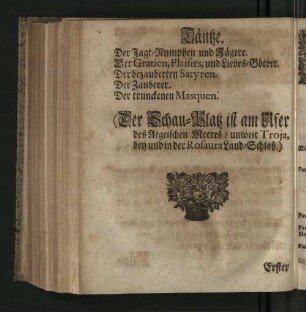 Täntze.
Der Jagt-Nymphen und Jägere.
Der Gratien, Plaisirs, und Liebes-Götter.
Der bezauberten Satyren.
Der Zauberer.
Der trunckenen Masquen.
(Der Schau-Platz ist am Ufer
des Aegeischen Meeres / unweit Troja,
bey und in der Rosaura Land-Schloß.)
Erster